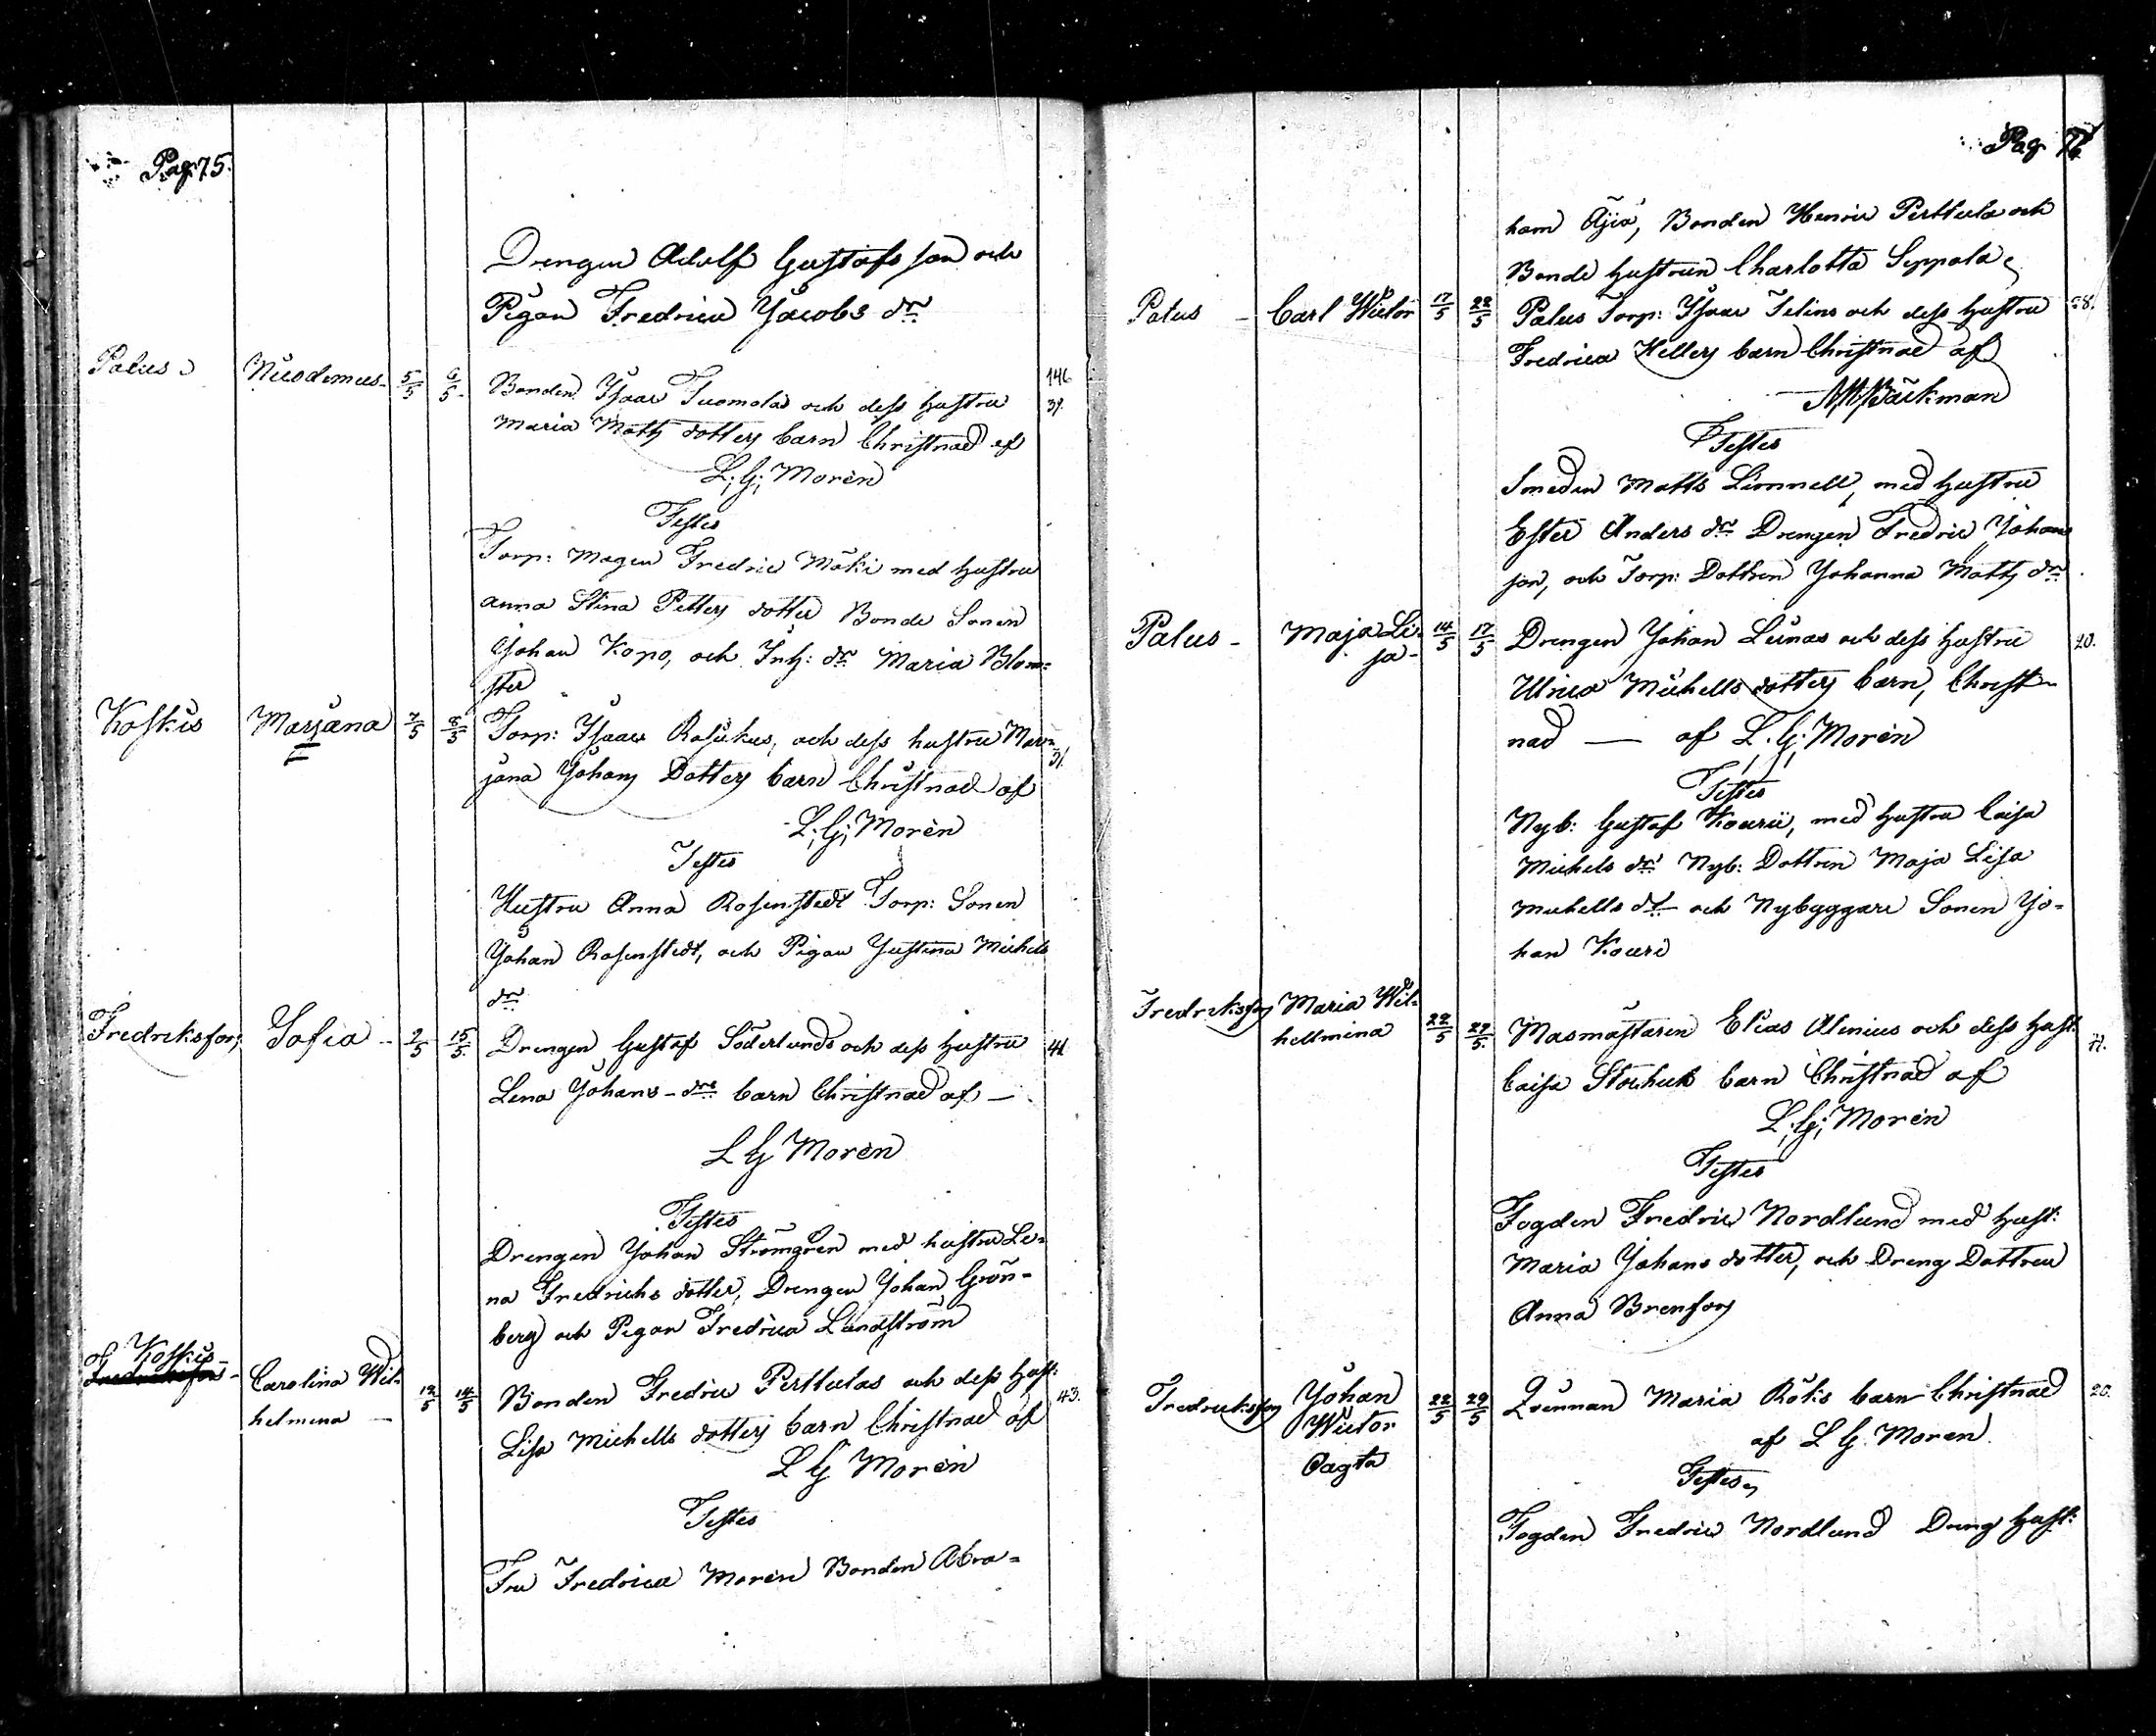 Pag. 75.
Drengen Adolf Gustafs son och
Pigan Fredrica Jacobs dr
Palus Nicodemus 5/5 6/5 Bonden Isaac Tuomolas och dess hustru 146
Maria Matts dotters barn Christnad af 39.
L. G. Morèn
Testes
Torp: Magen Fredric Mäki med hustru
Anna Stina Petters dotter Bonde Sonen
Johan Kopo, och Inh: dr Maria Blom=
ster
Koskis Marjana 7/5 8/5 Torp: Isaac Rajukus, och dess hustru Mar=
jana Johans Dotters barn Christnad af 31.
L. G. Morèn
Testes
Hustru Anna Rosenstedt Torp: Sonen
Johan Rosenstedt, och Pigan Justina Michels
dr
Fredriksfors Sofia - 2/5 15/5. Drengen Gustaf Söderlunds och dess hustru 41.
Lena Johans-drs barn Christnad af —
L G Morèn
Testes
Drengen Johan Strömgren med hustru Le=
na Fredrichs dotter, Drengen Johan Grön-
berg och Pigan Fredrica Landström
Koskis
Fredriksfors - Carolina Wil= 12/5 14/5 Bonden Fredric Perttulas och dess hust: 43.
helmina — Lisa Michells dotters barn Christnad af
L G Morèn
Testes
Fru Fredrica Morèn Bonden Abra=
Pag. 76
ham Äjiä, Bonden Henric Perttula och
Bonde hustrun Charlotta Seppala
Palus - Carl Wictor 17/5 22/5 Palus Torp: Isaac Telins och dess hustru 28.
Fredrica Hellers barn Christnad af
Bäckman
Testes
Smeden Matts Linnnell, med hustru
Ester Anders dr Drengen Fredric Johans
son, och Torp: Dottren Johanna Matts dr
Palus - Maja Li= 14/5 17/5 Drengen Johan Lunas och dess hustru 20.
sa - Ulrica Michells dotters barn, Christ-
nad — af L. G. Morèn
Testes
Nyb: Gustaf Kourii, med hustru Caisa
Michels dr Nyb: Dottren Maja Lisa
Michells dr och Nybyggare Sonen Jo=
han Kouri
Fredriksfors Maria Wil= 22/5 29/5. Masmästaren Elias Alenius och dess hust:
hellmina Caisa barn Christnad af
L. G. Morèn
Testes
Fogden Fredric Nordlund med hust:
Maria Johans dotter, och Dreng Dottren
Anna Brenfors
Fredricksfors Johan 22/5 29/5 Qvinnan Maria Röks barn Christnad 20.
Wictor af L G. Moren
Oagta Testes
Fogden Fredric Nordlund Dreng hust: